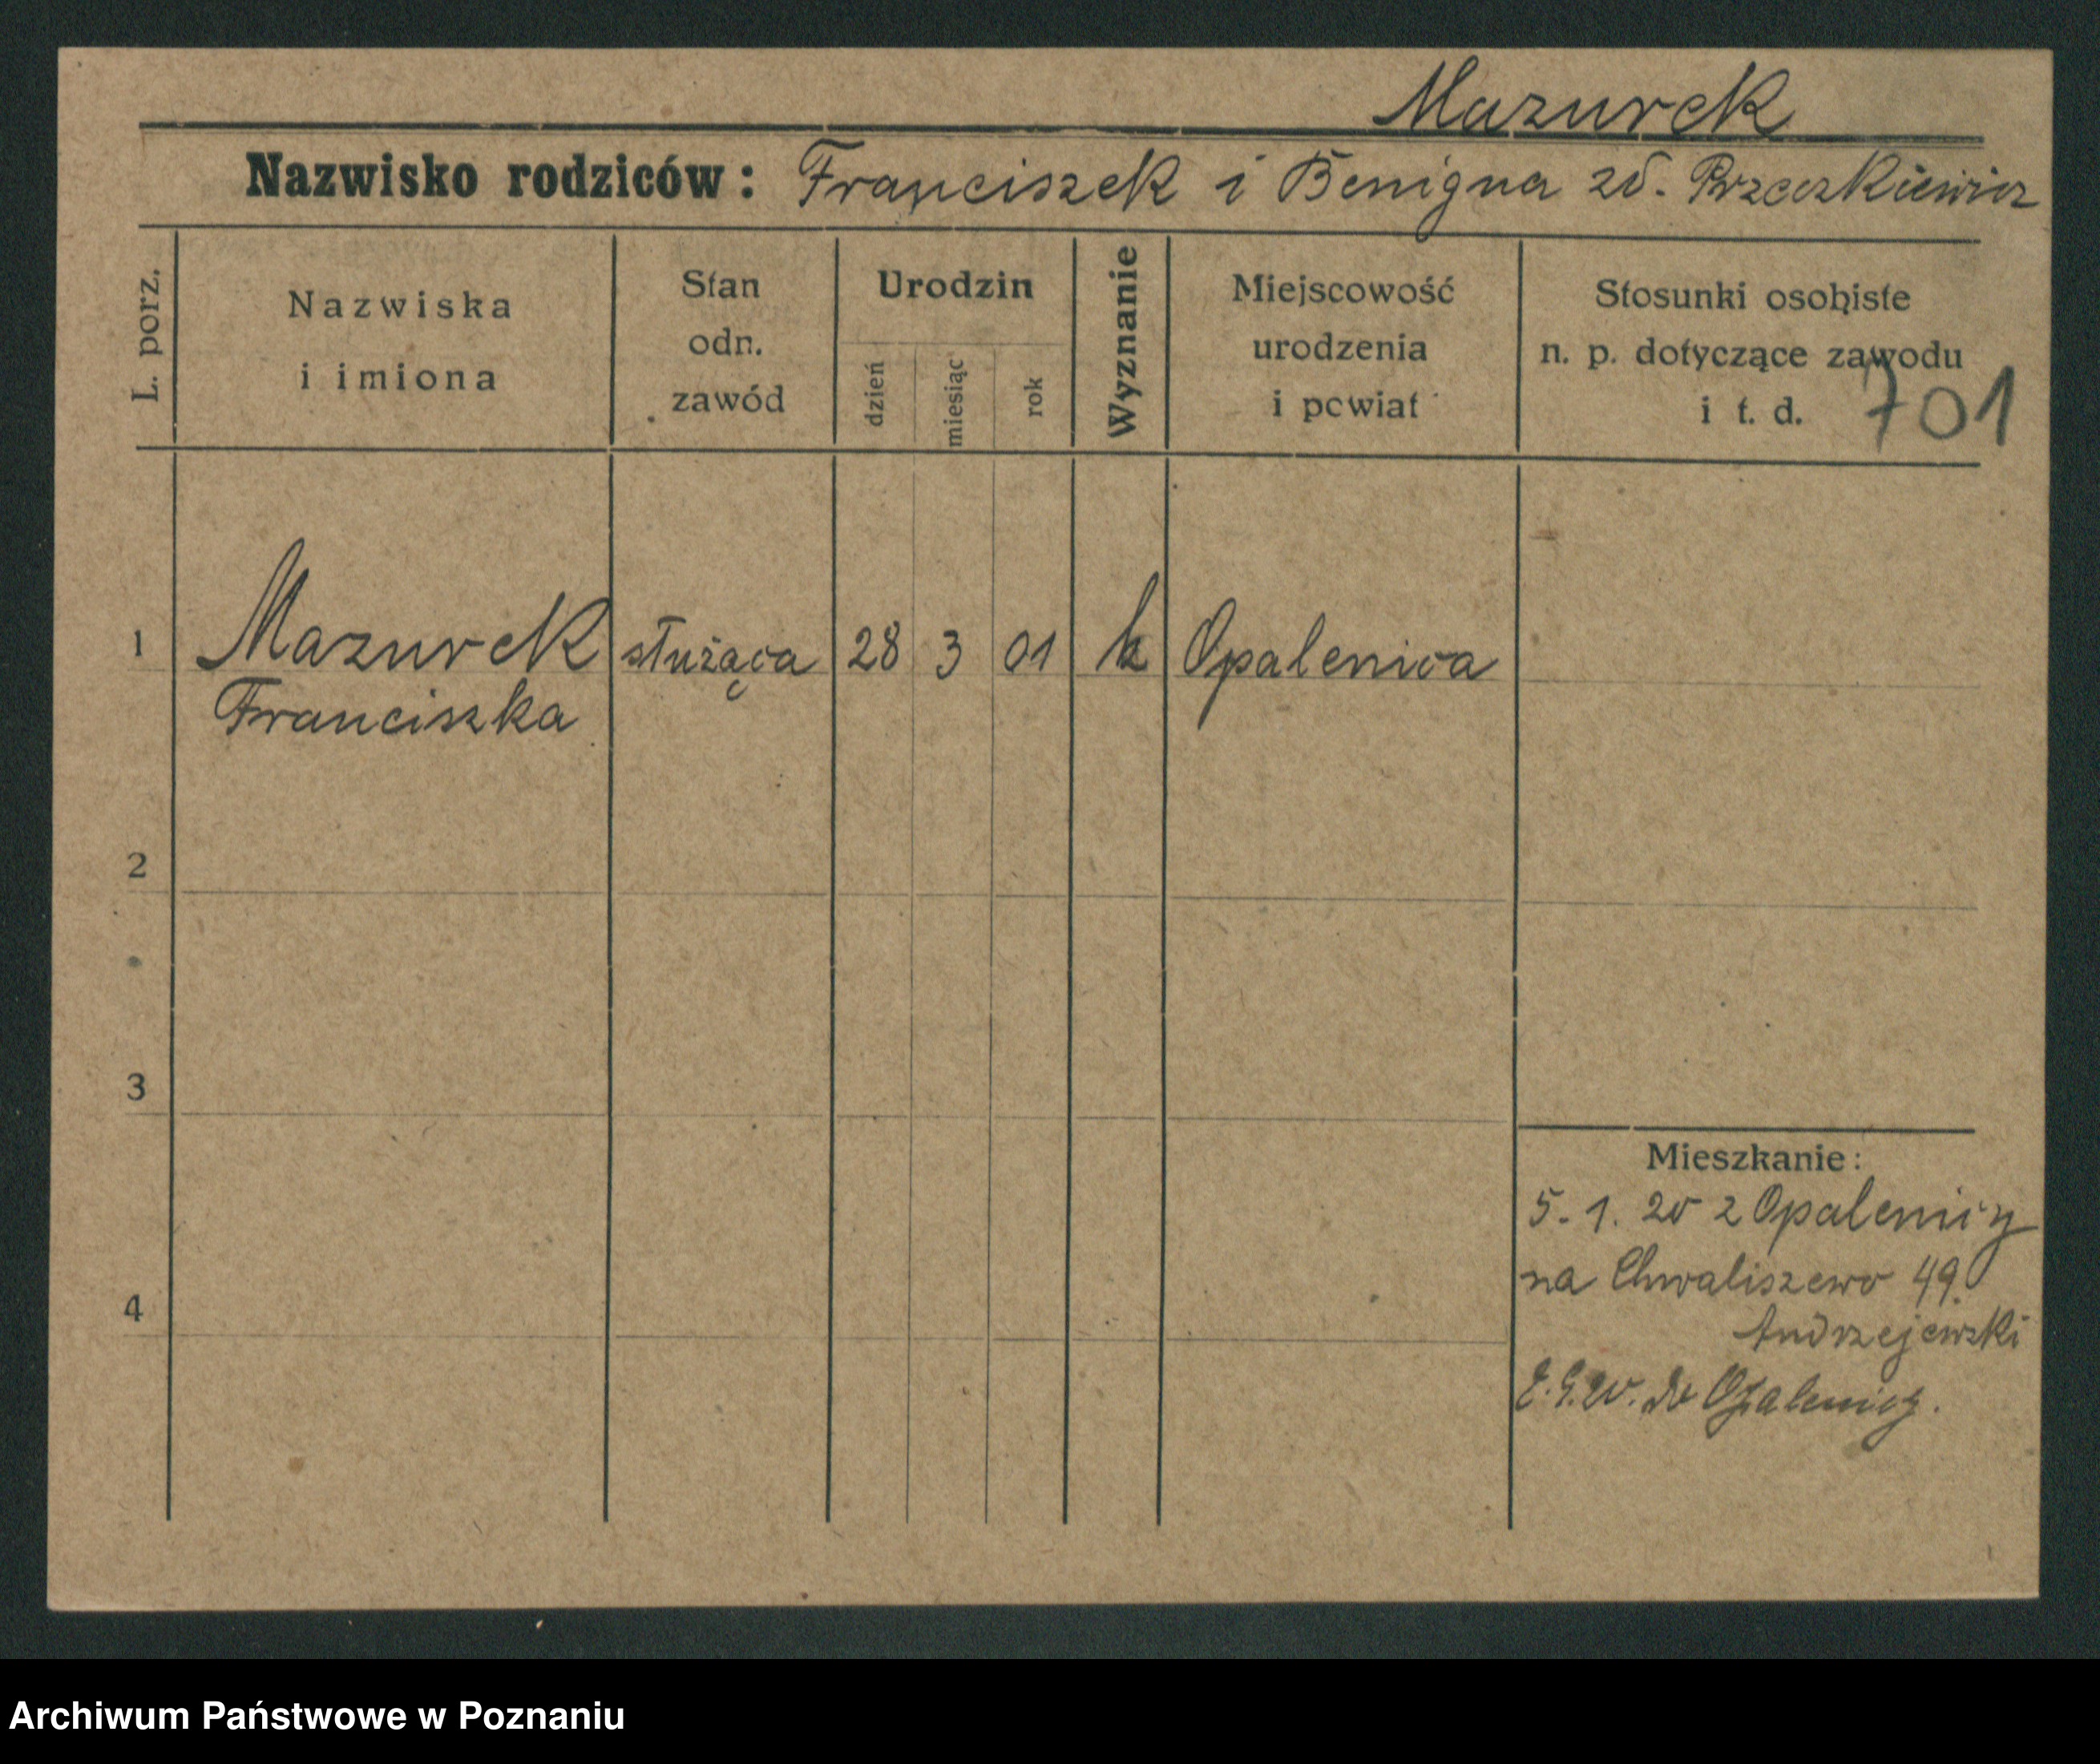 Mazurek
Nazwisko rodziców: Franciszek i Benigna zd.
L. porz.
Nazwiska
i imiona
Stan
odn.
zawód
Urodzin
dzień
miesiąc
rok
Wyznanie
Miejscowość
urodzenia
i powiat
Stosunki osobiste
n. p. dotyczące zawodu
i t. d.
701
1 Mazurek służąca 28 3 01 k Opalenica
Franciszka
2
3
4
Mieszkanie:
5. 1. 20 z Opalenicy
na Chwaliszewo 49
Andrzejewski
do Opalenicy.
Archiwum Państwowe w Poznaniu